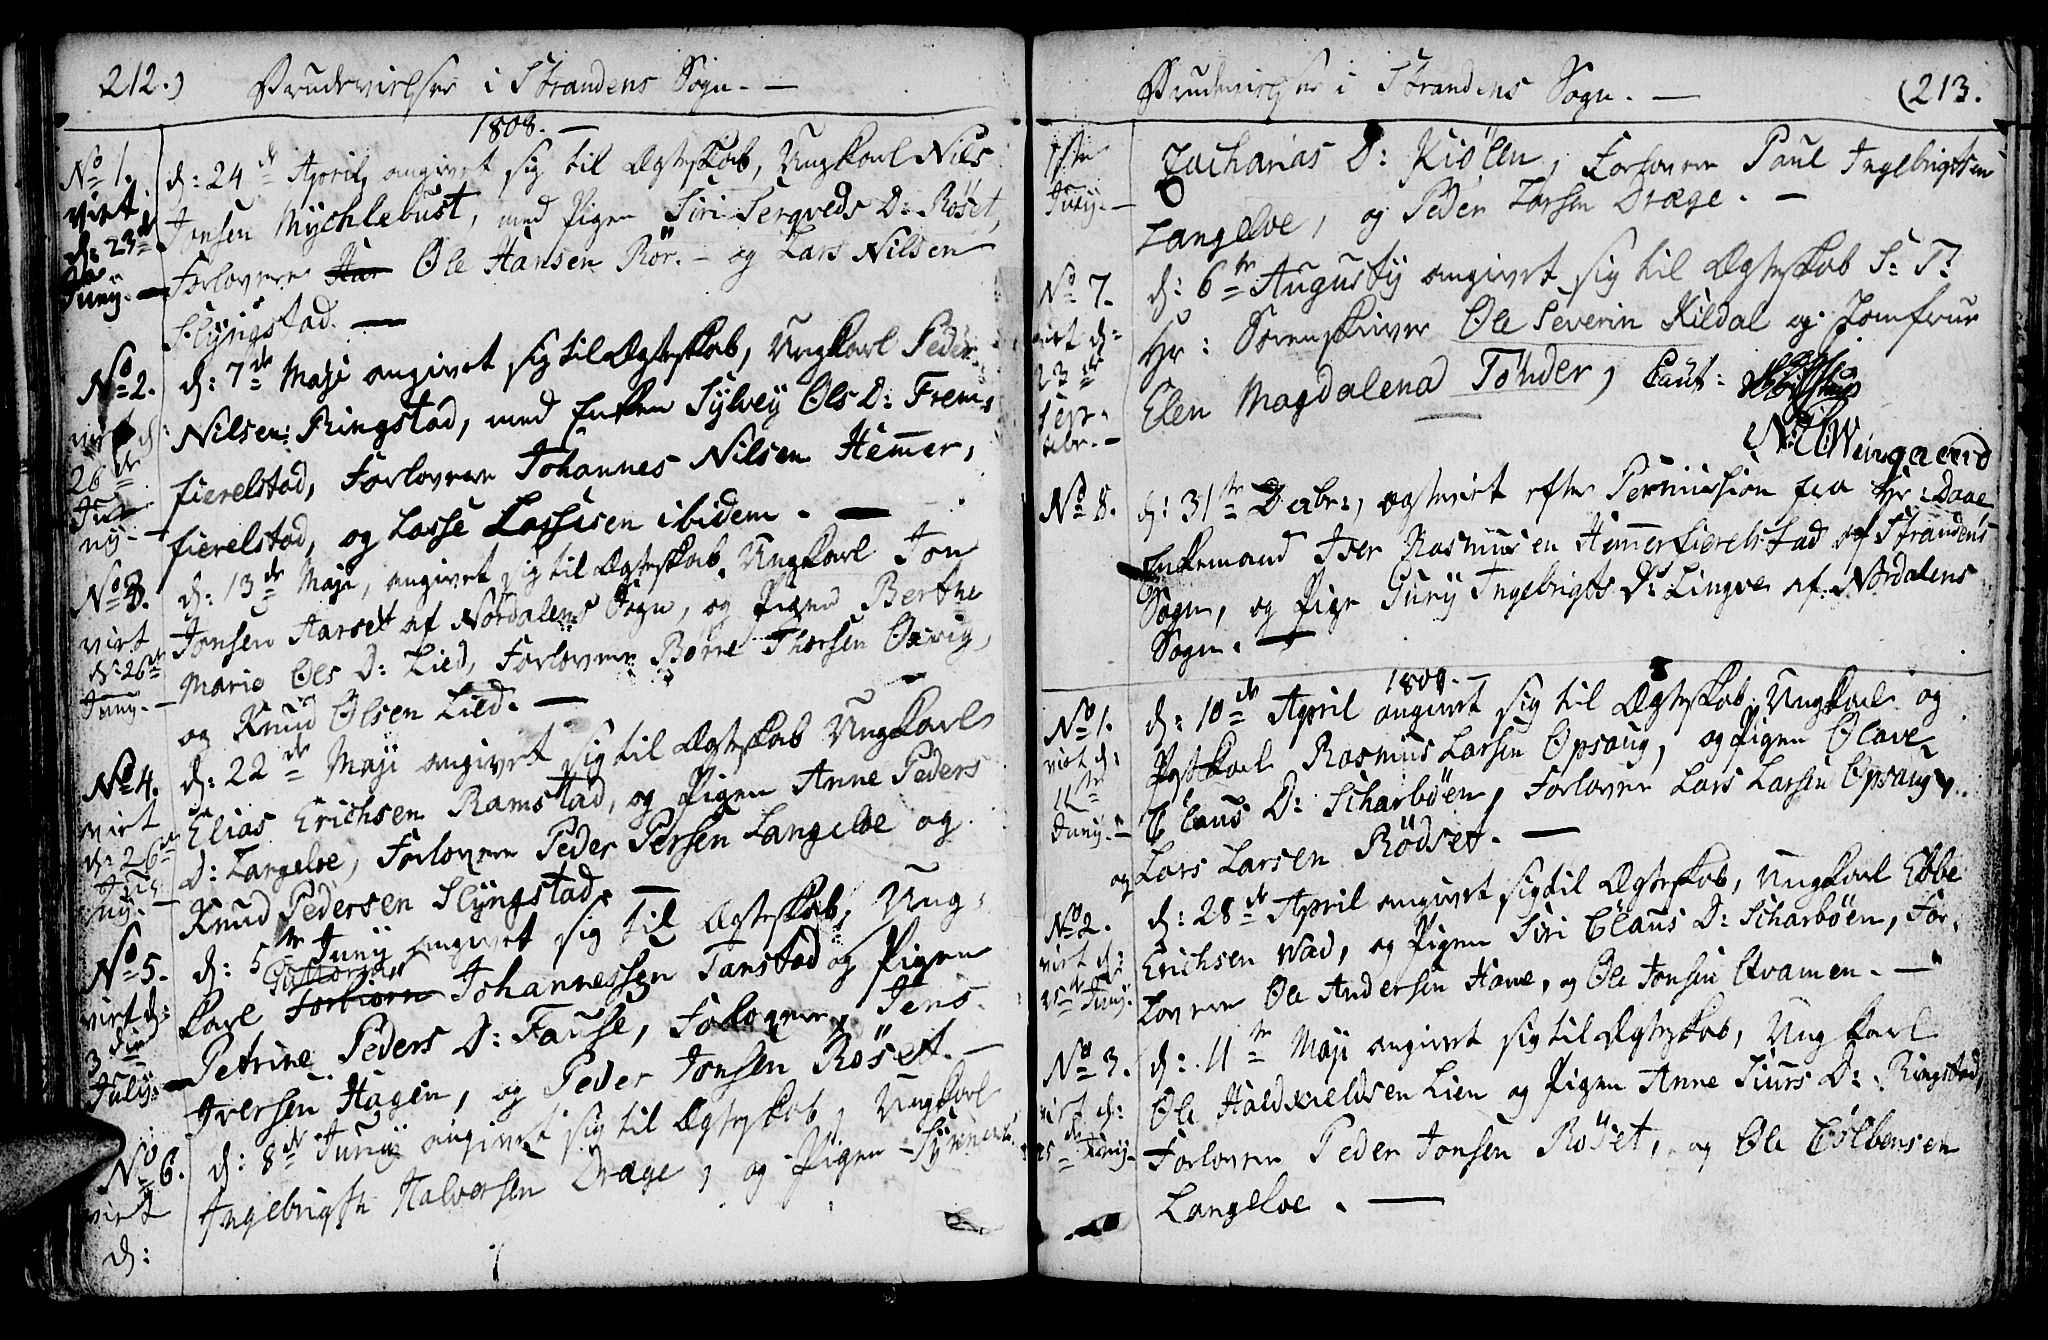 212.) Brudevielser i Strandens Sogn. —
1808. —
No 1.
viet
d: 23de
Juny. —
d: 24de April, angivet sig til Ægteskab, Ungkarl Nils
Jonsen Mychlebust, med Pigen Siri Sergveds D: Röset,
Forlovere Han Ole Hansen Rör. – og Lars Nilsen
Slyngstad. —
No 2.
viet d:
26de
Ju-
ny. —
d: 7de Maji angivet sig til Ægteskab, Ungkarl Peder
Nilsen Ringstad, med Enken Sylvey Ols D: Frem-
fierelstad, Forlovere Johannes Nilsen Hemer-
fierelstad, og Lasse Lassesen ibidem. —
No 3.
viet
d: 26de
Juny. —
d: 13de Maji, angivet sig til Ægteskab, Ungkarl Jon
Jonsen Aarset af Nordalens Sogn, og Pigen Berthe
Marie Ols D: Lied, Forlovere Børre Thorsen Overvig,
og Knud Olsen Lied. —
No 4.
viet
d: 26de
Ju-
ny. —
d: 22de Maji angivet sig til Ægteskab Ungkarl
Elias Erichsen Ramstad, og Pigen Anne Peders
D: Langeloe, Forlovere Peder Persen Langeloe og
Knud Pedersen Slyngstad. —
No 5.
viet d:
3die
July. —
d: 5te Juny angivet sig til Ægteskab, Ung-
karl Torbiørn Johannessen Tanstad og Pigen
Petrine Peders D: Fause, Forlovere, Jens
Iversen Hagen, og Peder Jonsen Röset. —
No 6.
viet
d:
d: 8de Juny angivet sig til Ægteskab, Ungkarl
Ingebrigth Halvorsen Dræge, og Pigen
Brudevielser i Strandens Sogn. — (213.
Juny. —
Zacharias D: Kiölen, Forlovere Paul Ingebrigtsen
Langeloe, og Peder Larsen Dræge. —
No 7.
viet d:
23de
Sept-
ebr. —
d: 6te Augusty angivet sig til Ægteskab S: T:
Hr: Sorenskriver Ole Severin Kildal og Jomfrue
Elen Magdalena Tönder, Caut:
Weingaard
No 8.
d: 31te Decbr:, ægteviet efter Permission fra Hr: Daae
Enkemand Iver Rasmusen Hemerfierelstad af Strandens
Sogn, og Pige Gury Ingebrigts D: Linge af Nordalens
Sogn. —
1809. —
No 1.
viet d:
11te
Juny. —
d: 10de April angivet sig til Ægteskab Ungkarl og
Rasmus Larsen Opsaug, og Pigen Olave
Claus D: Scharböen, Forlovere Lars Larsen Opsaug,
og Lars Larsen Rödset. —
No 2.
viet d:
25de Juny.
d: 28de April angivet sig til Ægteskab, Ungkarl Ebbe
Erichsen Wad, og Pigen Siri Claus D: Scharböen, For-
lovere Ole Andersen Hove, og Ole Jonsen Qvamen. —
No 3.
viet d:
25de Juny —
d: 11te Maji angivet sig til Ægteskab, Ungkarl
Ole Haldvieldsen Lien og Pigen Anne Siurs D: Ringstad,
Forlovere Peder Jonsen Röset, og Ole Colbensen
Langeloe. —